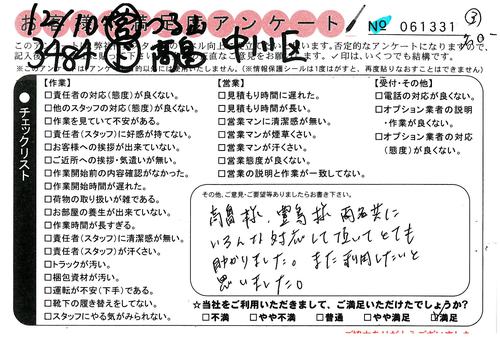 お客様満足度アンケート
12/10
3484 高畠 中川区
№ 061331
③
このアンケートは
否定的なアンケートになりますので、
直なご意見をお願いします。✓印は、いくつでも結構です。
(※情報保護シールは1度はがすと、再度貼りなおすことはできません)
●チェックリスト
【作業】
□責任者の対応(態度)が良くない。
□他のスタッフの対応(態度)が良くない。
□作業を見ていて不安がある。
□責任者(スタッフ)に好感が持てない。
□お客様への挨拶が出来ていない。
□ご近所への挨拶・気遣いが無い。
□作業開始前の内容確認がなかった。
□作業開始時間が遅れた。
□荷物の取り扱いが雑である。
□お部屋の養生が出来ていない。
□作業時間が長すぎる。
□責任者(スタッフ)に清潔感が無い。
□責任者(スタッフ)が汗くさい。
□トラックが汚い。
□梱包資材が汚い。
□運転が不安(下手)である。
□靴下の履き替えをしてない。
□スタッフにやる気がみられない。
【営業】
□見積もり時間に遅れた。
□見積もり時間が長い。
□営業マンに清潔感が無い。
□営業マンが煙草くさい。
□営業マンが汗くさい。
□営業態度が良くない。
□営業の説明と作業が一致してない。
【受付・その他】
□電話の対応が良くない。
□オプション業者の説明
・作業が良くない。
□オプション業者の対応
(態度)が良くない。
その他、ご意見・ご要望等ありましたらお書き下さい。
高畠様、豊島様 両名共に
いろんな対応して頂いてとても
助かりました。また利用したいと
思いました。
☆当社をご利用いただきまして、ご満足いただけたでしょうか?
□不満 □やや不満 □普通 □やや満足 ☑満足